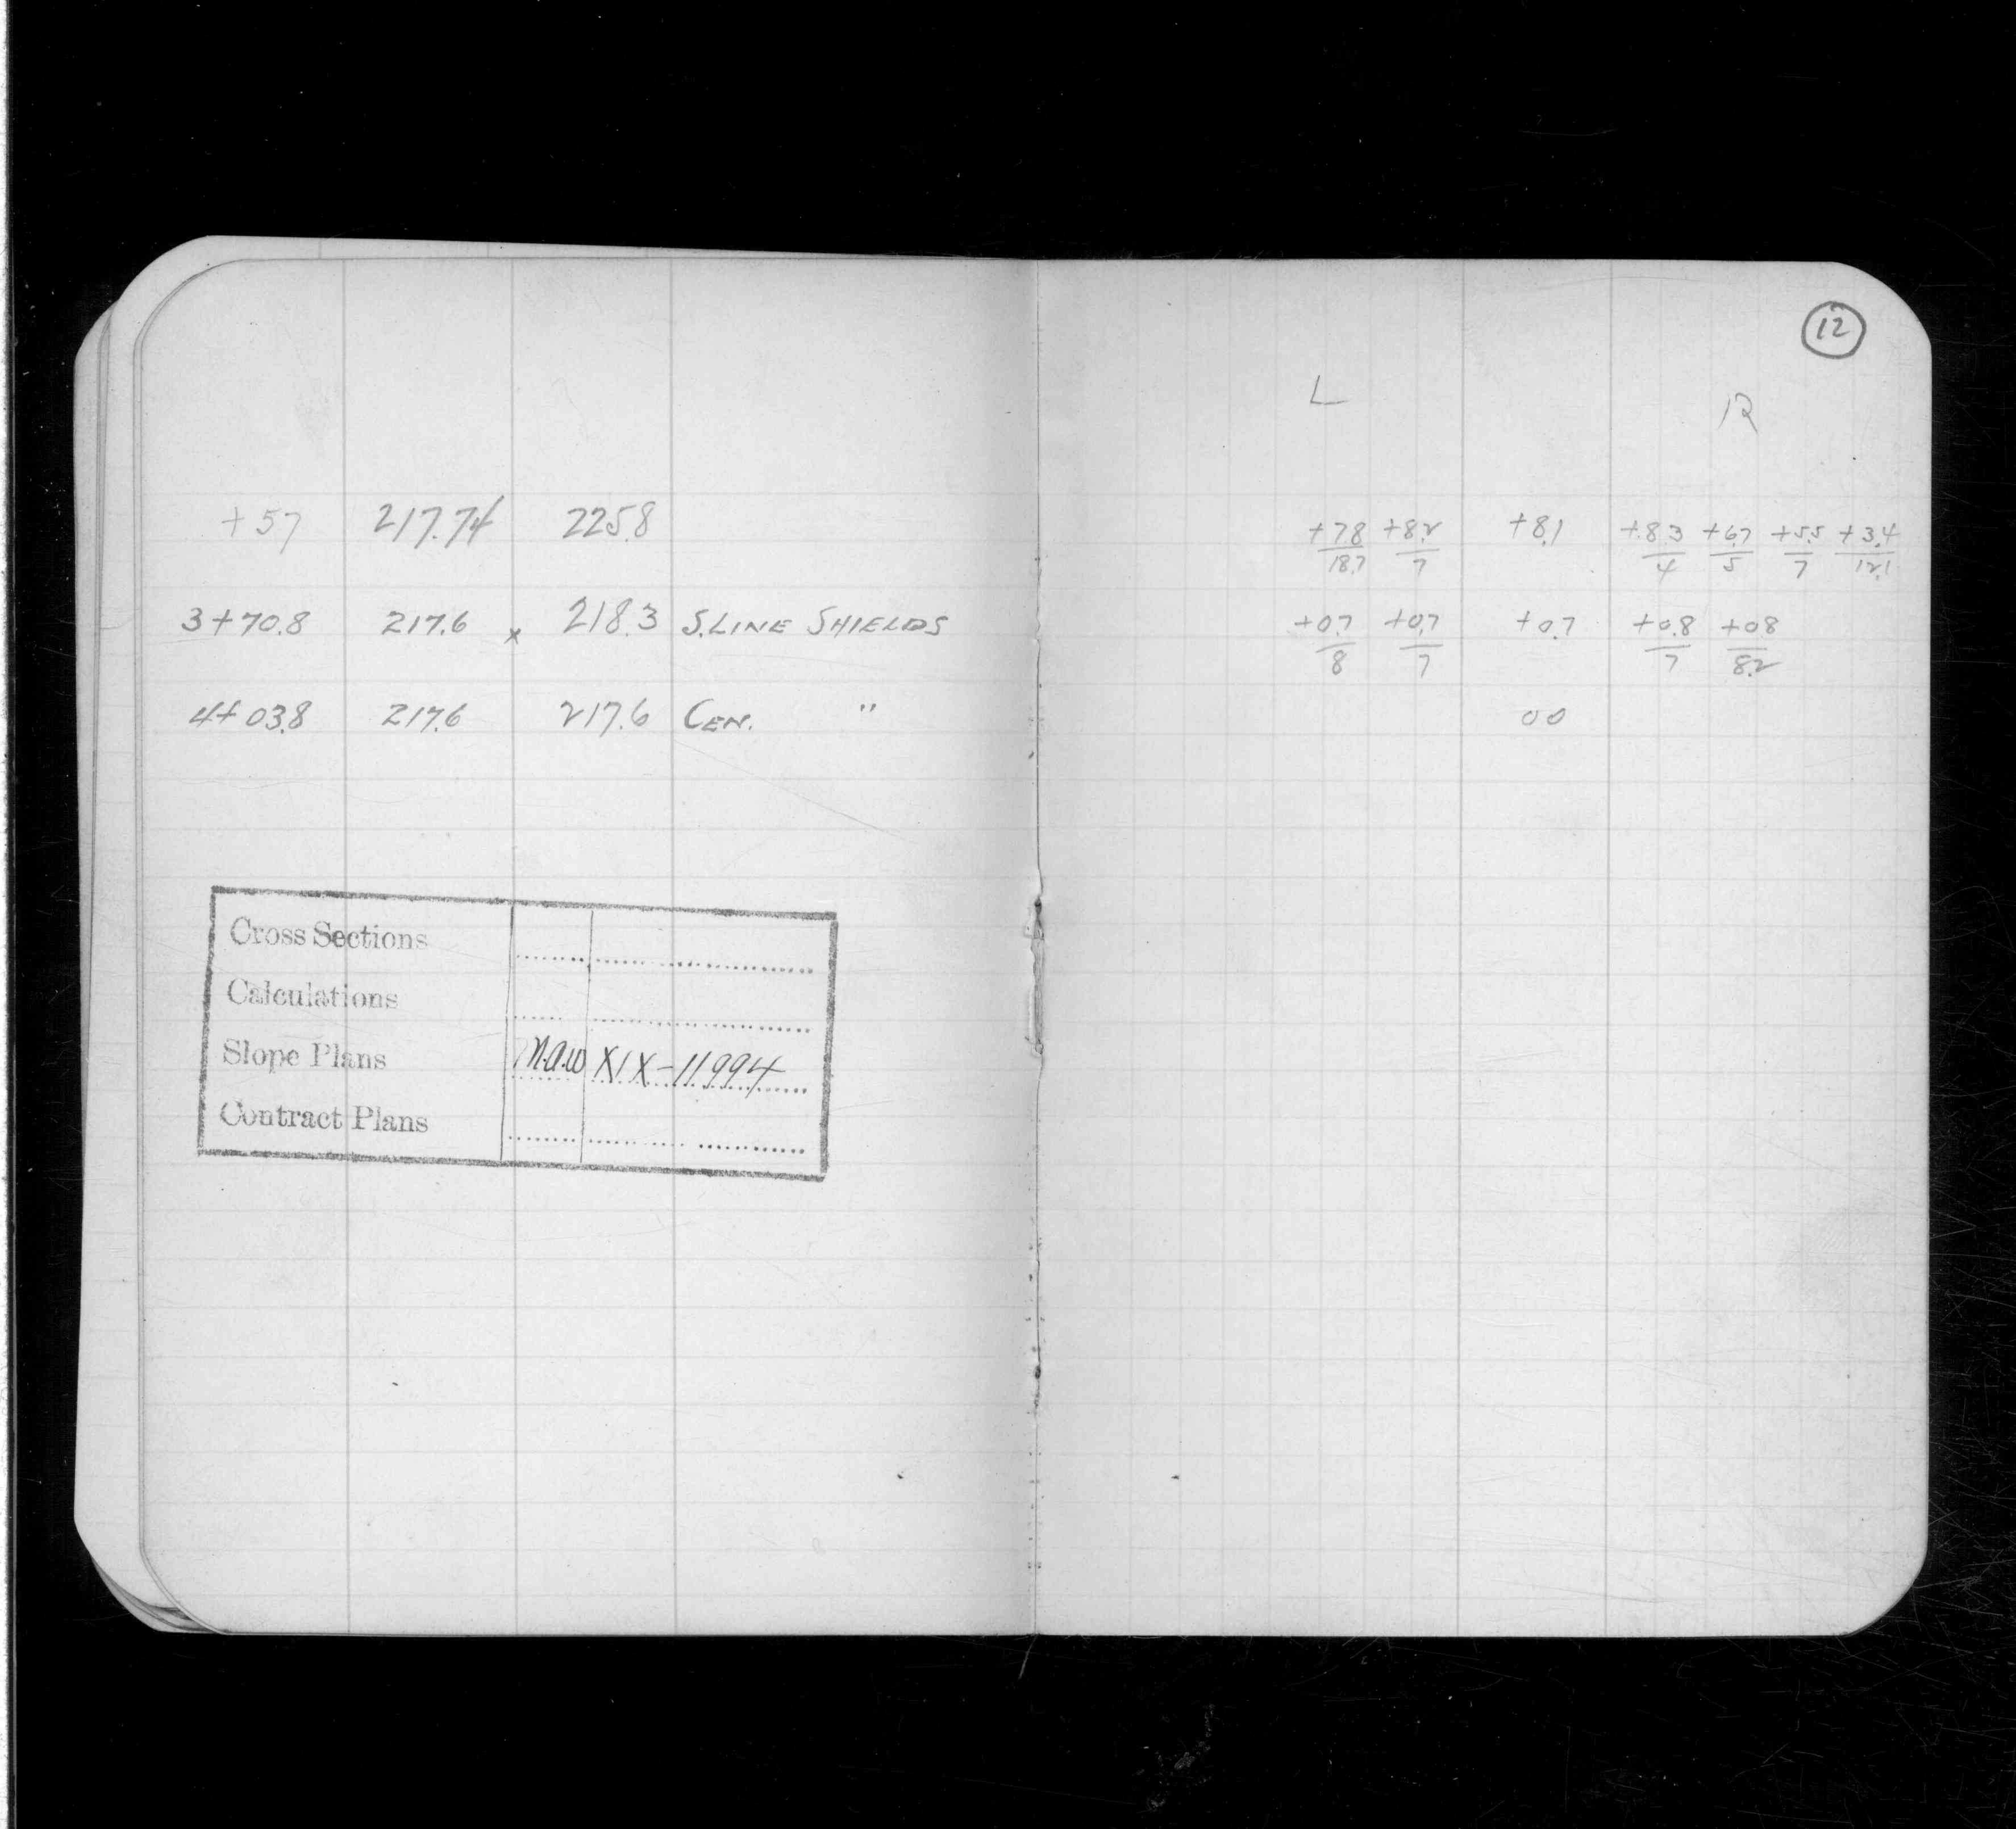 12
L R
+57 217.74 225.8 +7.8/18.7 +8.2/7 +8.1 +8.3/4 +6.7/5 +5.5/7 +3.4/12.1
3+70.8 217.6 x 218.3 S.LINE SHIELDS +0.7/8 +0.7/7 +0.7 +0.8/7 +0.8/8.2
4+03.8 217.6 217.6 CEN. " 00
Cross Sections
Calculations
Slope Plans m.a.w XIX-11994
Contract Plans